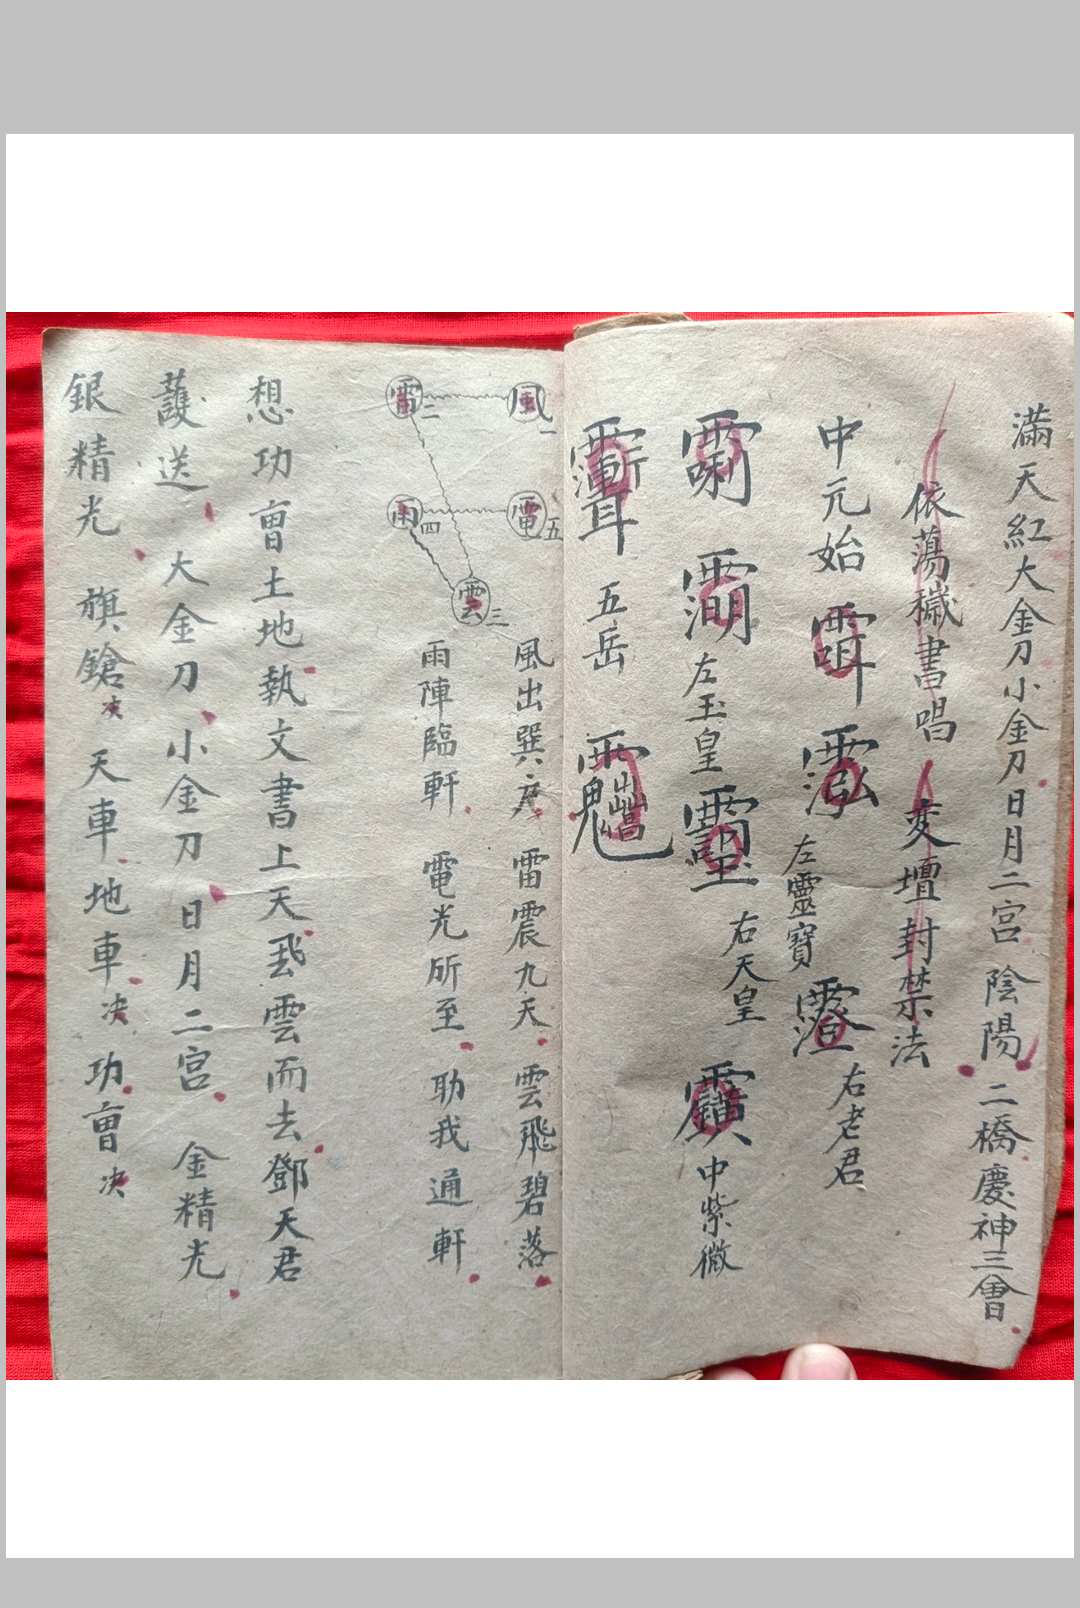 滿天紅大金刀小金刀日月二宮 陰陽 二橋慶神三會
依蕩穢書唱 变壇封禁法
中元始 左靈寶 右老君
左玉皇 右天皇 中紫微
五岳
風一
雷二
雲三
雨四
電五
風出巽方 雷震九天 雲飛碧落
雨陣臨軒 電光所至 助我通軒
想功曺土地執文書上天飛雲而去鄧天君
護送 大金刀 小金刀 日月二宮 金精光
銀精光 旗鎗决 天車 地車决 功曺决